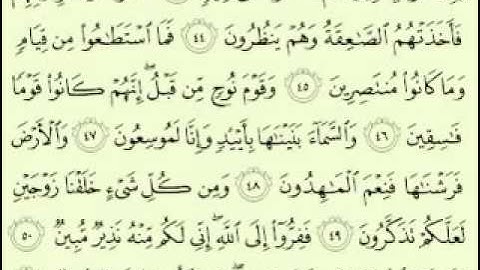 فَأَخَذَتْهُمُ ٱلصَّـٰعِقَةُ وَهُمْ يَنظُرُونَ ٤٤ فَمَا ٱسْتَطَـٰعُوا۟ مِن قِيَامٍ
وَمَا كَانُوا۟ مُنتَصِرِينَ ٤٥ وَقَوْمَ نُوحٍ مِّن قَبْلُ ۖ إِنَّهُمْ كَانُوا۟ قَوْمًا
فَـٰسِقِينَ ٤٦ وَٱلسَّمَآءَ بَنَيْنَـٰهَا بِأَيْي۟دٍ وَإِنَّا لَمُوسِعُونَ ٤٧ وَٱلْأَرْضَ
فَرَشْنَـٰهَا فَنِعْمَ ٱلْمَـٰهِدُونَ ٤٨ وَمِن كُلِّ شَىْءٍ خَلَقْنَا زَوْجَيْنِ
لَعَلَّكُمْ تَذَكَّرُونَ ٤٩ فَفِرُّوٓا۟ إِلَى ٱللَّهِ ۖ إِنِّى لَكُم مِّنْهُ نَذِيرٌ مُّبِينٌ ٥٠